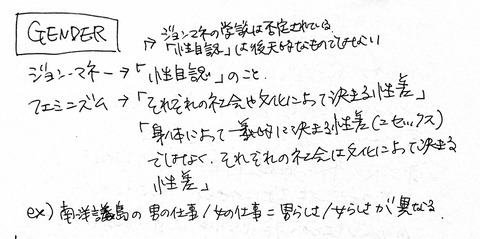 GENDER
→ ジョン・マネの学説は否定されている.
「性自認」は後天的なものではない
ジョン・マネー→「性自認」のこと.
フェミニズム→「それぞれの社会や文化によって決まる性差」
「身体によって一義的に決まる性差(=セックス)
ではなく、それぞれの社会や文化によって決まる
性差」
ex) 南洋諸島の男の仕事/女の仕事=男らしさ/女らしさが異なる.